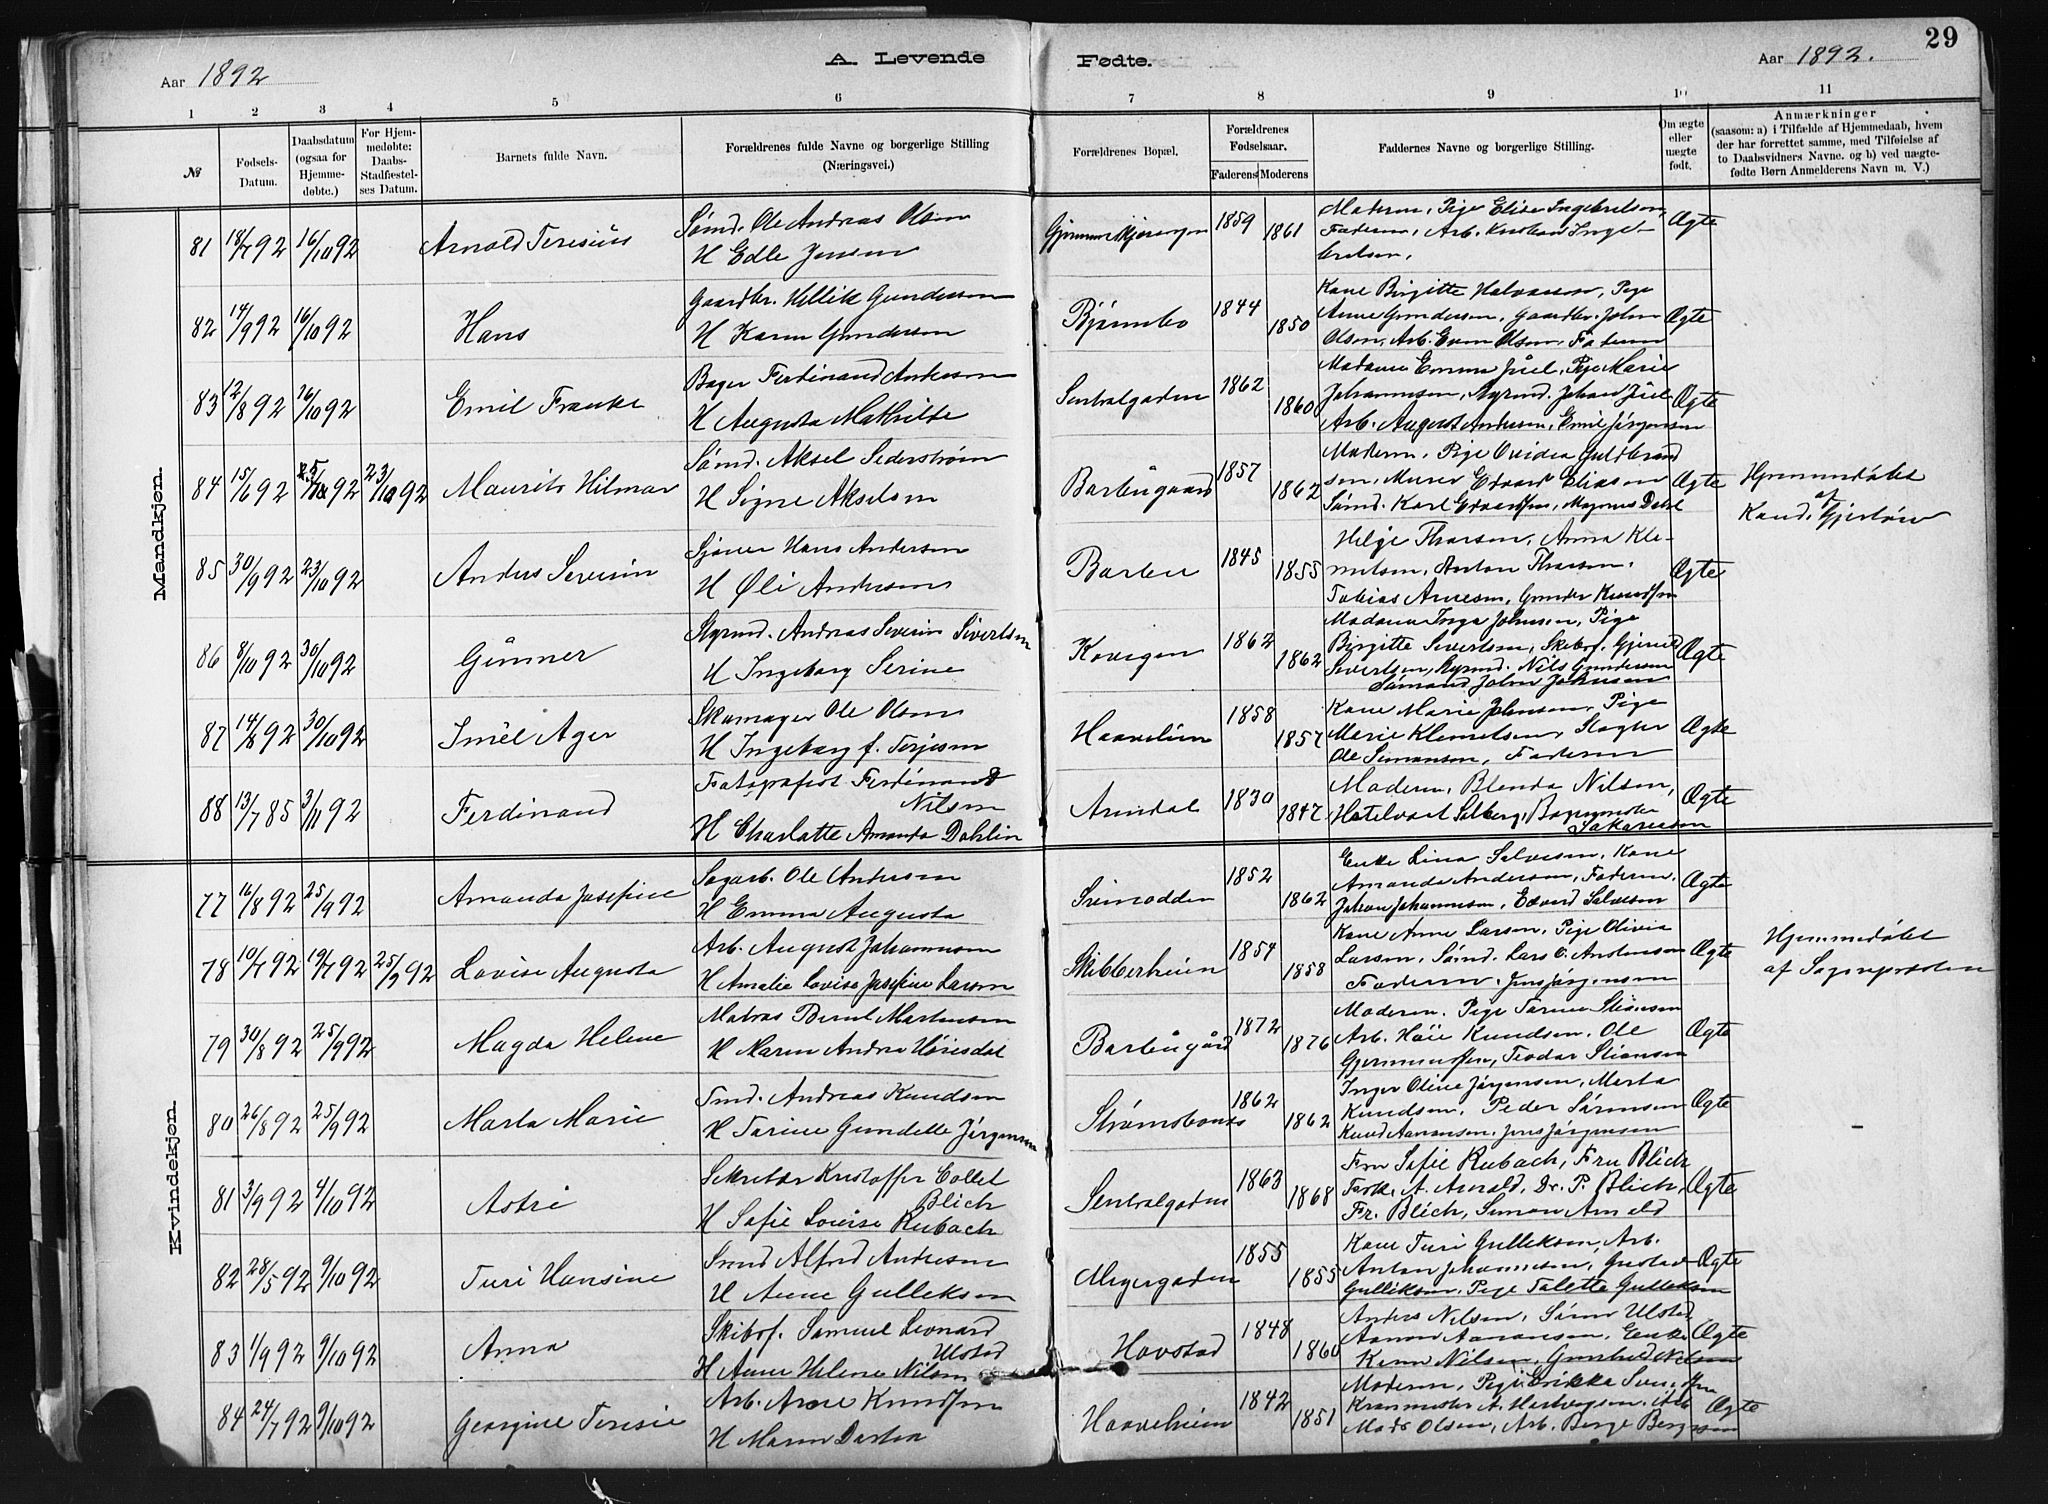 29
Aar 1892
A. Levende Fødte.
Aar 1892.
1 2 3 4 5 6 7 8 9 10 11
№
Fødsels-Datum.
Daabsdatum (ogsaa for Hjemme-døbte.)
For Hjem-medøbte: Daabs-Stadfæstel-ses Datum.
Barnets fulde Navn.
Forældrenes fulde Navne og borgerlige Stilling (Næringsvei.)
Forældrenes Bopæl.
Forældrenes Fødselsaar.
Faderens Moderens
Faddernes Navne og borgerlige Stilling.
Om ægte eller uægte født.
Anmærkninger
(saasom: a) i Tilfælde af Hjemmedaab, hvem
der har forrettet samme, med Tilføielse af
to Daabsvidners Navne. og b) ved uægte-
fødte Børn Anmelderens Navn m. V.)
Mandkjøn.
81 18/7 92 16/10 92 Arnold Teresius
Sømd. Ole Andreas Olsen
H Edle Jensen
1859 1861
Moderen, Pige Elise Ingebretsen,
Faderen, Arb. Kristian Inge-
bretsen.
Ægte
82 14/9 92 16/10 92 Hans
Gaardbr. Kittil Gundersen
H Karen Gundersen
Bjørnebo 1844 1850
Kone Birgitte Halvorsen, Pige
Anne Gundersen, Gaardbr. John
Olsen, Arb. Even Olsen, Faderen
Ægte
83 12/8 92 16/10 92 Emil Franke
Bager Ferdinand Andersen
H Augusta Mathilde
Sentralgaden 1862 1860
Madame Emma Juel, Pige Marie
Johannesen, Styrmd. Johan Juel
Arb. August Andersen, Emil Jörgensen
Ægte
84 15/6 92 92 23/10 92 Maurits Hilmar
Sømd. Aksel Sederstrøm
H Signe Akselsen
Barbugaard 1857 1862
Moderen, Pige Ovidea Guldbrand
sen, Murer Edvard Eliasen
Sømd. Karl Edvardsen, Magnus Dahl
Ægte
Hjemmedøbt
af
Kand. Gjerløw
85 30/9 92 23/10 92 Anders Severin
Sjauer Hans Andersen
H Øli Andersen
Barbu 1845 1855
Helge Tharsen, Anna Kle-
metsen, Anton Tharsen,
Tobias Arnesen, Gunder Knudsen
Ægte
86 8/10 92 30/10 92 Günner
Styrmd. Andreas Severin Sivertsen
H Ingeborg Serine
Kovigen 1862 1862
Madame Inga Johnsen, Pige
Birgitte Severtsen, Skibsf. Gjerulf
Severtsen, Styrmd. Nils Gundersen
Sømand John Johnsen
Ægte
87 14/8 92 30/10 92 Imél Ager
Skomager Ole Olsen
H Ingeborg f. Terjesen
Haavehien 1858 1857
Kone Marie Johnsen, Pige
Marie Klemetsen, Slagter
Ole Simonsen, Faderen
Ægte
88 13/7 85 3/11 92 Ferdinand
Fotografist Ferdinand
Nilsen
H Charlotte Amanda Dahlin
Arendal 1830 1847
Moderen, Blenda Nilson,
Hotelvært Solberg, Bagermester
Sakariasen
Ægte
Kvindekjøn.
77 16/8 92 25/9 92 Amanda Josefine
Sagarb. Ole Andersen
H Emma Augusta
Svinodden 1852 1862
Enke Lina Salvesen, Kone
Amanda Andersen, Faderen,
Johan Johannesen, Edvard Salvesen
Ægte
78 10/7 92 19/7 92 25/9 92 Lovise Augusta
Arb. August Johannesen
H Amalie Lovise Josefine Larsen
Skibberheien 1854 1858
Kone Anne Larsen, Pige Olivia
Larsen, Sømd. Lars O. Andersen
Faderen. Jens Jörgensen
Ægte
Hjemmedøbt
af Sognepresten
79 30/8 92 25/9 92 Magda Helene
Matros Bernt Martinsen
H Maren Andrea Höiesdal
Barbugård 1872 1876
Moderen, Pige Tarine Stiansen
Arb. Höie Knudsen. Ole
Gjermundsen, Teodor Stiansen
Ægte
80 26/8 92 25/9 92 Marta Marie
Smd. Andreas Knudsen
H Tarine Gundelle Jörgensen
Strømsbonds 1862 1862
Inger Oline Jörgensen, Marta
Knudsen, Peder Sörensen
Knud Aanonsen, Jens Jörgensen
Ægte
81 3/9 92 4/10 92 Astri
Sekretær Kristoffer Collet
Blich
H Sofie Lovise Rubach
Sentralgaden 1863 1868
Fru Sofie Rubach, Fru Blich
Frøk. A. Arnold, Dr. P. Blich,
Fr. Blich, Simon Arnold
Ægte
82 28/5 92 9/10 92 Turi Hansine
Smd Alfred Andersen
H Anne Gulleksen
Meyergaden 1855 1855
Kone Turi Gulleksen, Arb.
Anton Johannesen, Gustav
Gulliksen, Pige Talette Gulleksen
Ægte
83 1/9 92 9/10 92 Anna
Skibsf. Samuel Leonard
Ulstad
H Anne Helene Nilsen
Havstad 1848 1860
Anders Nilsen, Sömn Ulstad,
Aanon Aanonsen, Enke
Karen Nilsen, Gunhild Nilsen
Ægte
84 24/7 92 9/10 92 Georgine Teresie
Arb. Arne Knudsen
H Maren
Haaveheien 1842 1851
Moderen, Pige Erikka Svendsen
Kranmester A. Hartvigsen. Arb
Mads Olsen, Arb. Berge Bergesen
Ægte